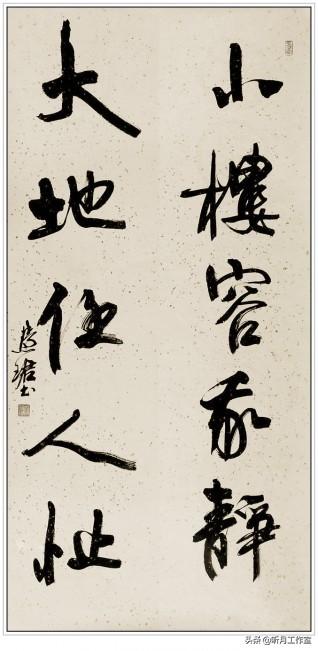 小樓容我靜
大地任人忙
慧珺书
头条 @听月工作室